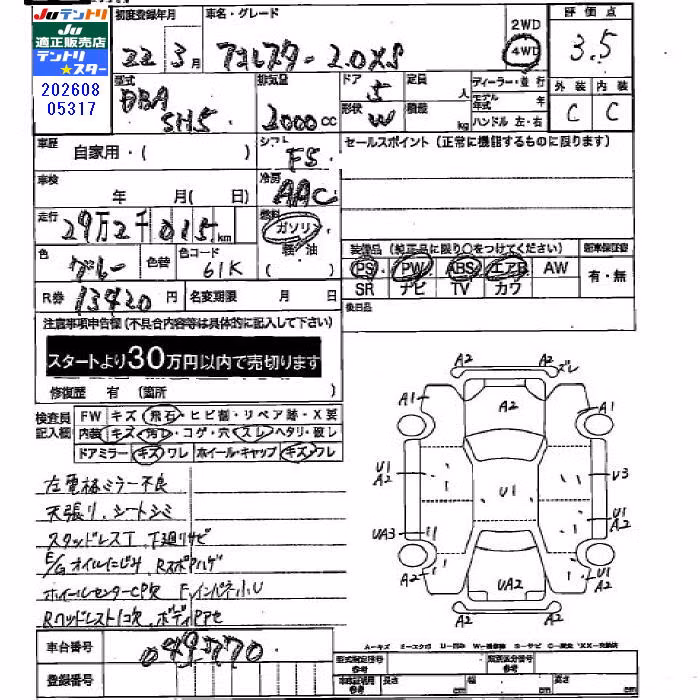 Juテントリ
Ju
適正販売店
テントリ
★スター
202608
05317
初度登録年月
22年3月
車名・グレード
フォレスター 2.0XS
2WD
4WD
評価点
3.5
型式
DBA
SH5
排気量
2000cc
ドア
5
形状
W
定員
人
積載
kg
ディーラー・並行
モデル年式
年
ハンドル 左・右
外装
内装
C
C
車歴
自家用・( )
シフト
F5
セールスポイント(正常に機能するものに限ります)
車検
年 月( 日)
冷房
AAC
走行
29万2千015km
燃料
ガソリン
軽・油
( )
装備品(純正品に限り○をつけてください)
新車保証書
色
グレー
色替
色コード
61K
PS PW ABS エアB AW
SR ナビ TV カワ
有・無
R券
13420円
名変期限
月 日
後日品
注意事項申告欄(不具合内容等は具体的に記入して下さい)
スタートより30万円以内で売切ります
修復歴 有 (箇所 )
検査員
記入欄
FW キズ・飛石・ヒビ割・リペア跡・X要
内装 キズ・汚れ・コゲ・穴・スレ・ヘタリ・破レ
ドアミラー キズ・ワレ ホイール・キャップ キズ・ワレ
左電格ミラー不良
天張り、シートシミ
スタッドレスT 下廻リサビ
E/Gオイルにじみ Rスポアハゲ
ホイールセンターCP欠 Fインパネ小U
Rヘッドレスト1コ欠 ボディPアセ
A2
A2
ズレ
A1
A2
A1
U1
A2
U1
U3
U1
A2
UA3
A2
UA2
U1
A2
A2
A2
A-キズ E-エクボ U-凹み W-補修跡 S-サビ C-腐食 XX-交換済
車台番号
049770
登録番号
型式指定番号
参考
類別区分番号
参考
車庫証明用
参考
長さ
cm
幅
cm
高さ
cm